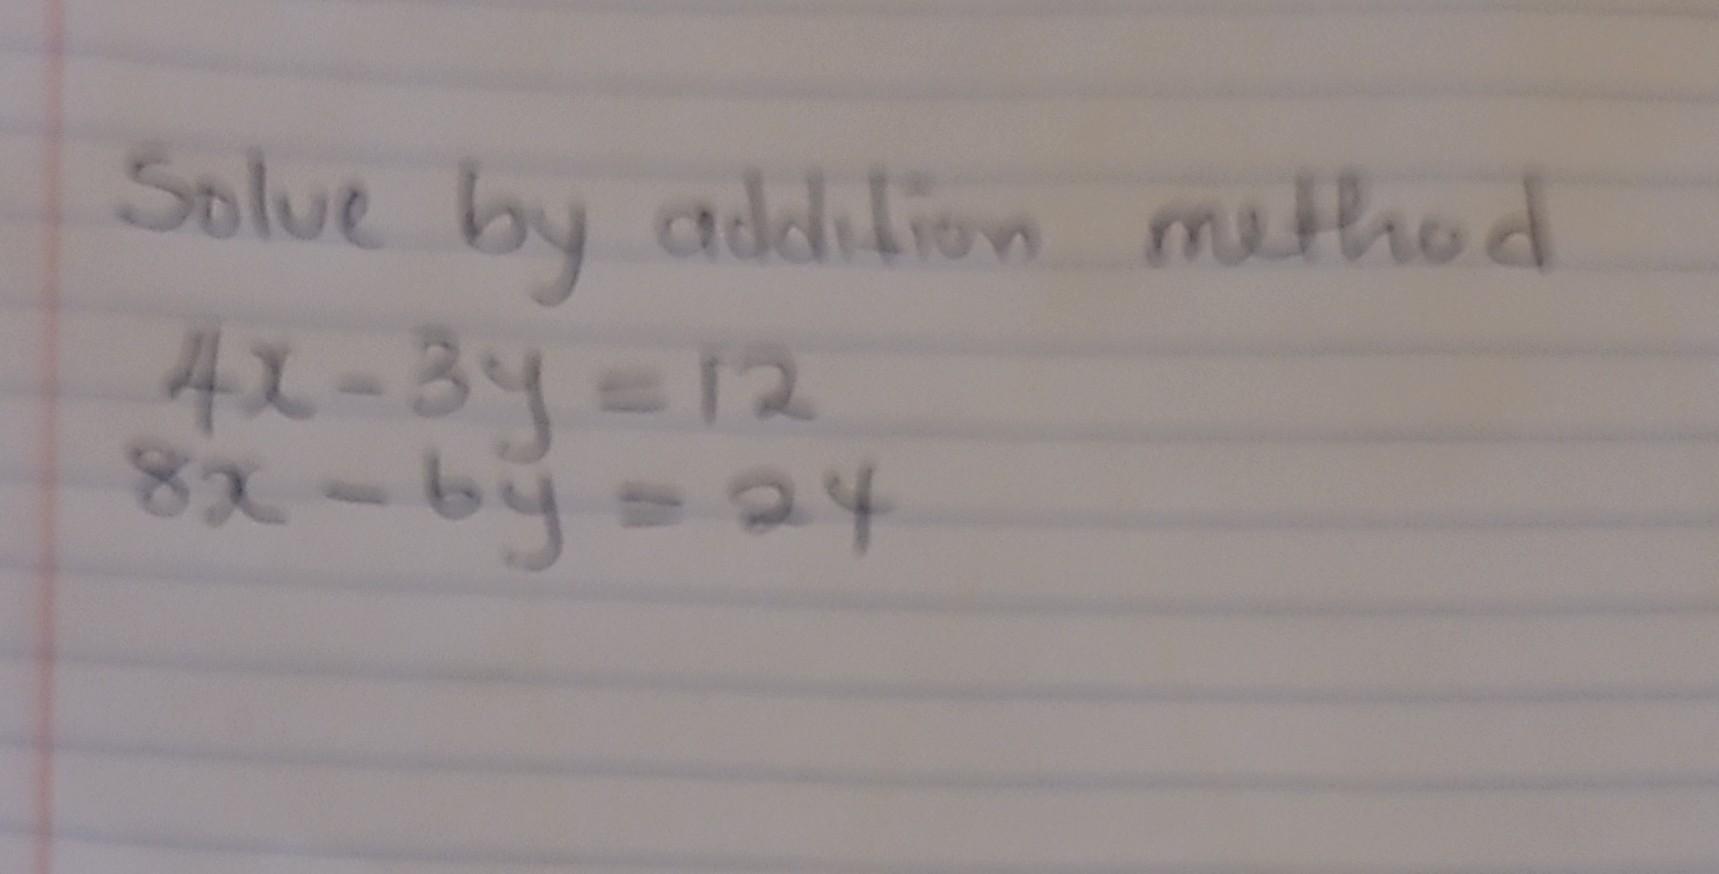 Solve by addition method
4x - 3y = 12
8x - 6y = 24